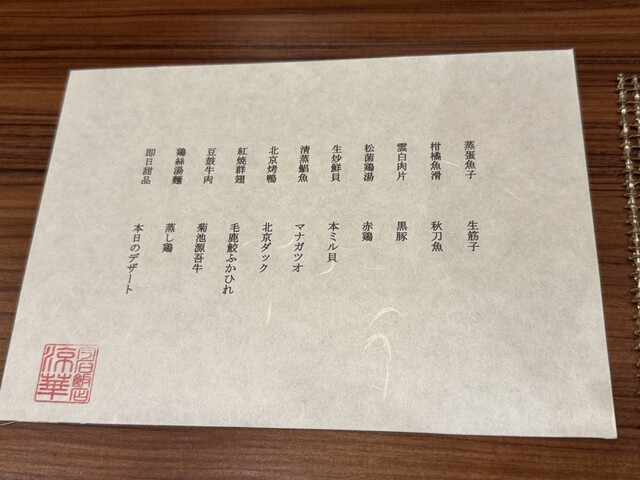 蒸蛋魚子 生筋子
柑橘魚滑 秋刀魚
雲白肉片 黒豚
松菌鶏湯 赤鶏
生炒鮮貝 本ミル貝
清蒸鯧魚 マナガツオ
北京烤鴨 北京ダック
紅燒群翅 毛鹿鮫ふかひれ
豆鼓牛肉 菊池源吾牛
鶏絲湯麵 蒸し鶏
即日甜品 本日のデザート
飯店
涼華